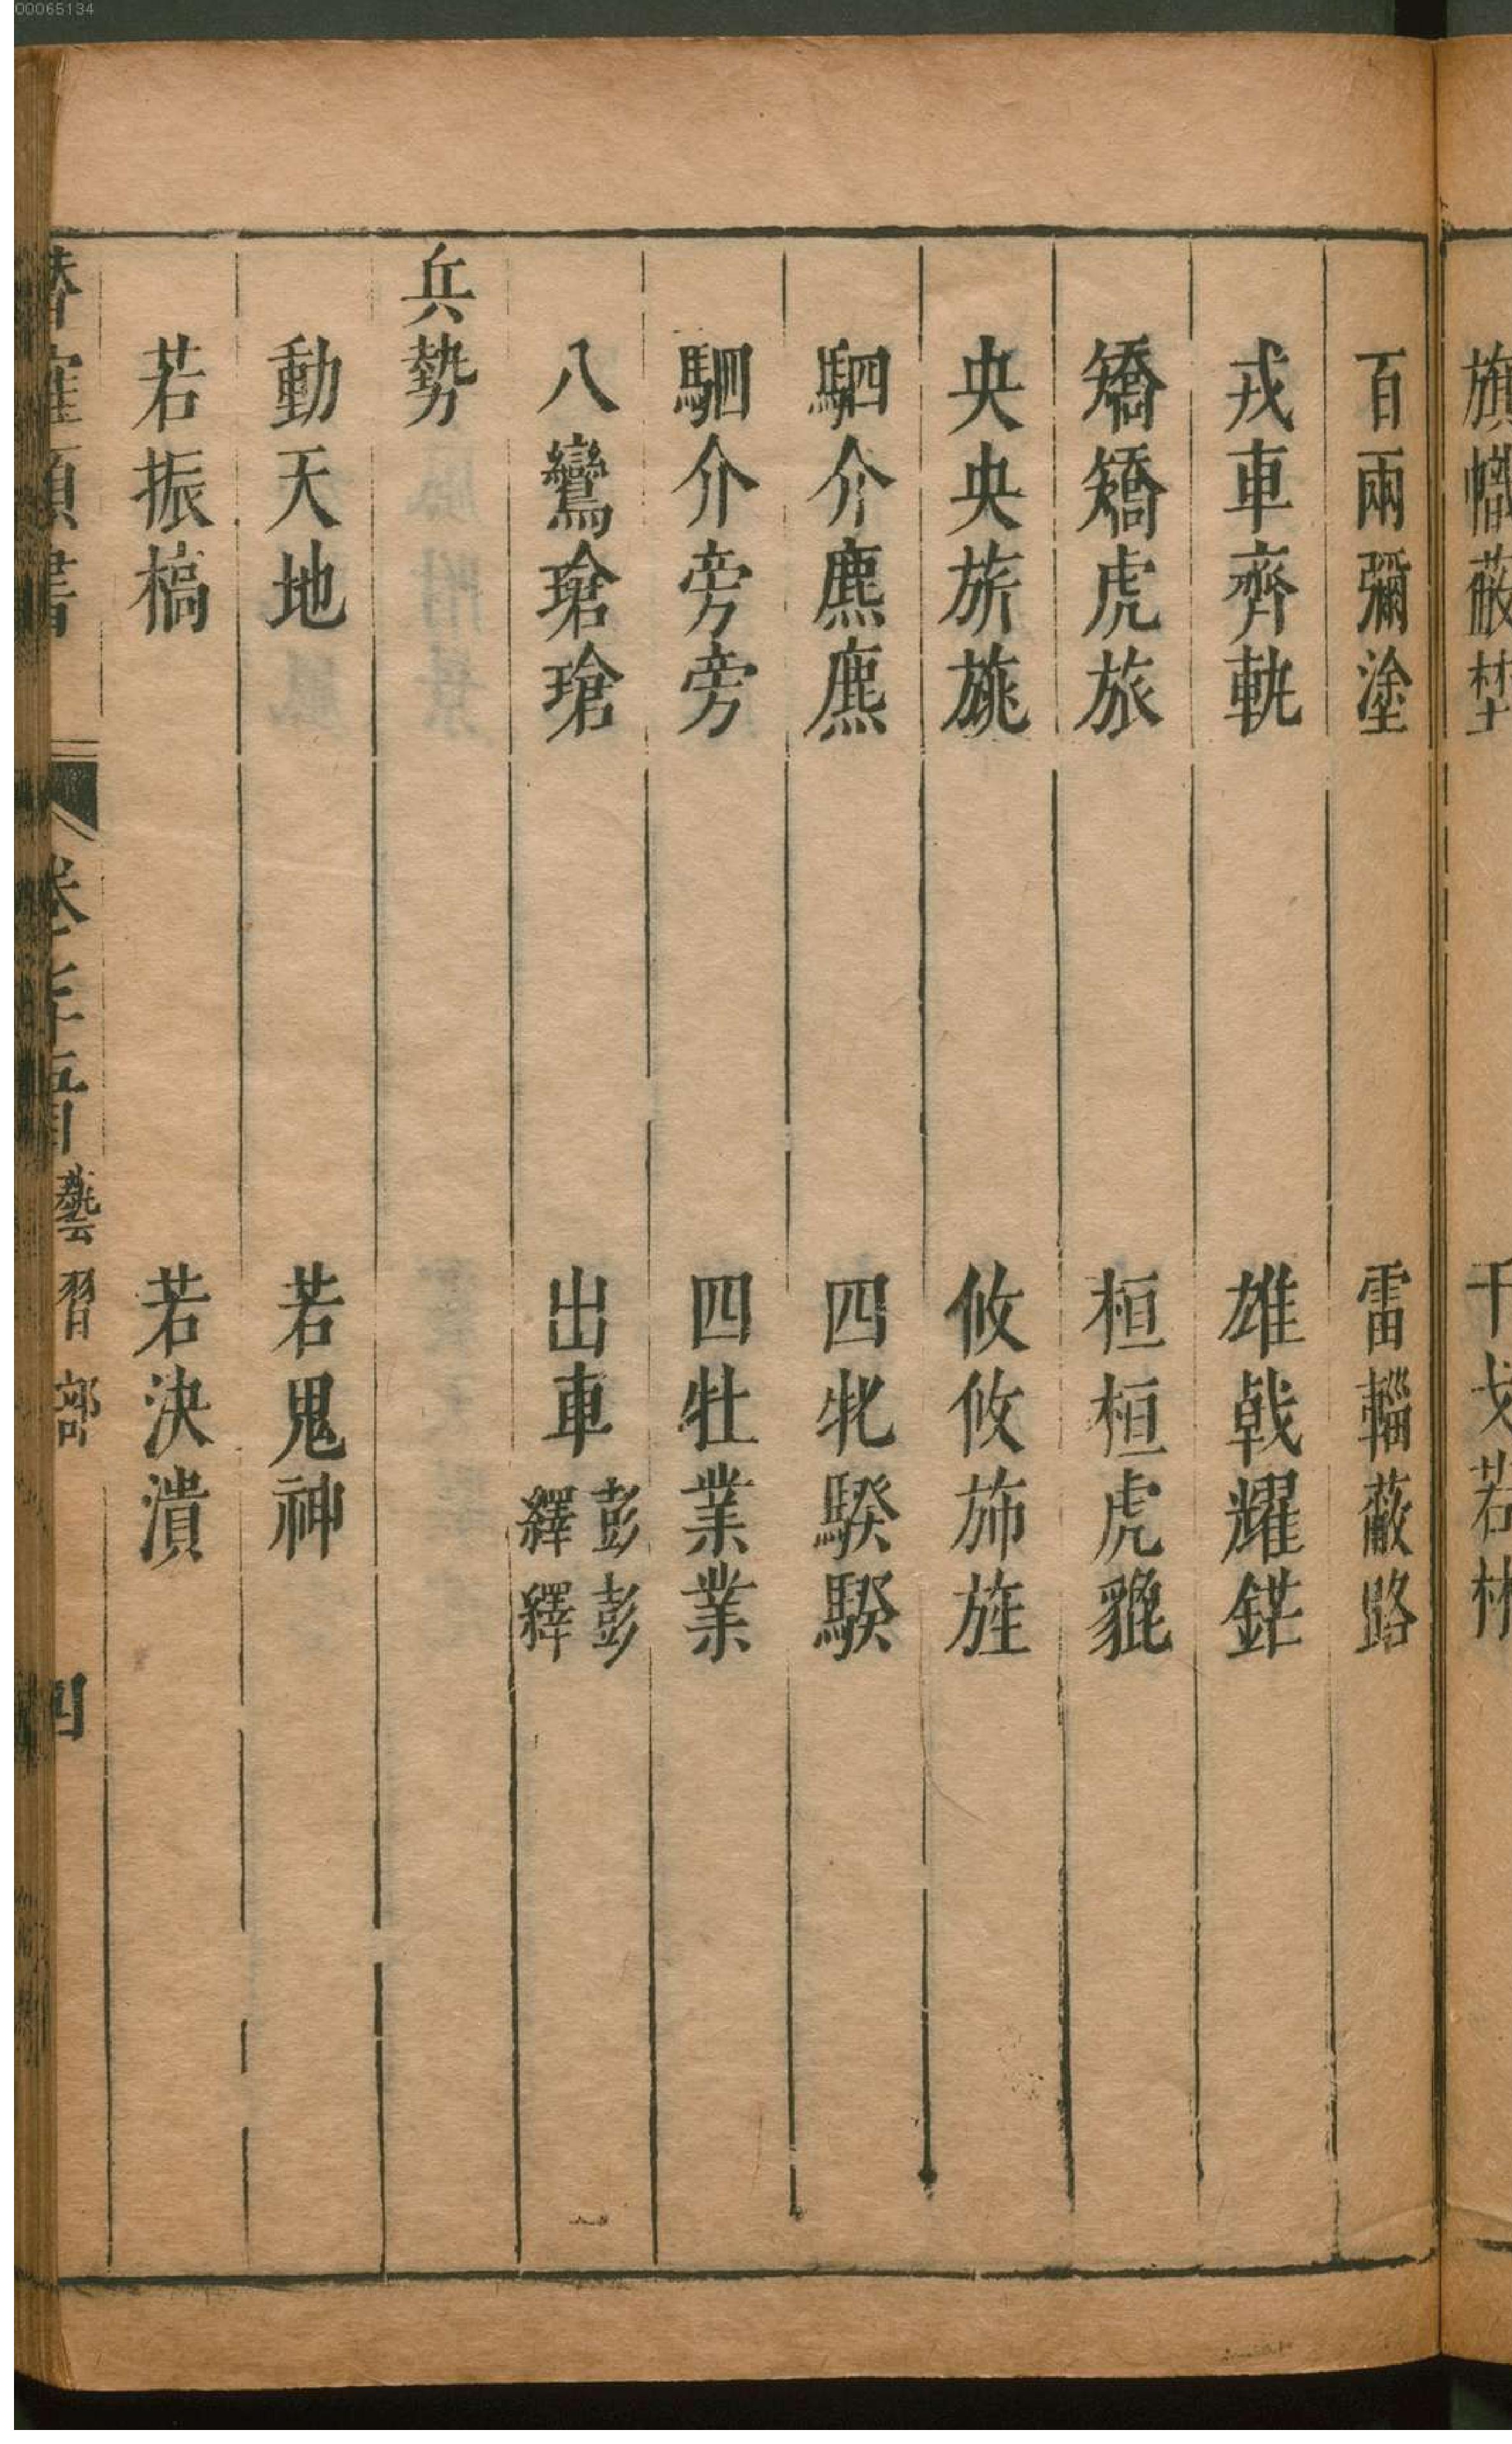 00065134
旗幟蔽埜
干戈若林
百兩彌塗
雷輜蔽路
戎車齊軌
雄戟耀鋩
矯矯虎旅
桓桓虎貔
央央旂旐
攸攸斾旌
駟介麃麃
四牝騤騤
駟介旁旁
四牡業業
八鸞瑲瑲
出車彭彭
繹繹
兵勢
動天地
若鬼神
若振槁
若決潰
書
藝習部
四